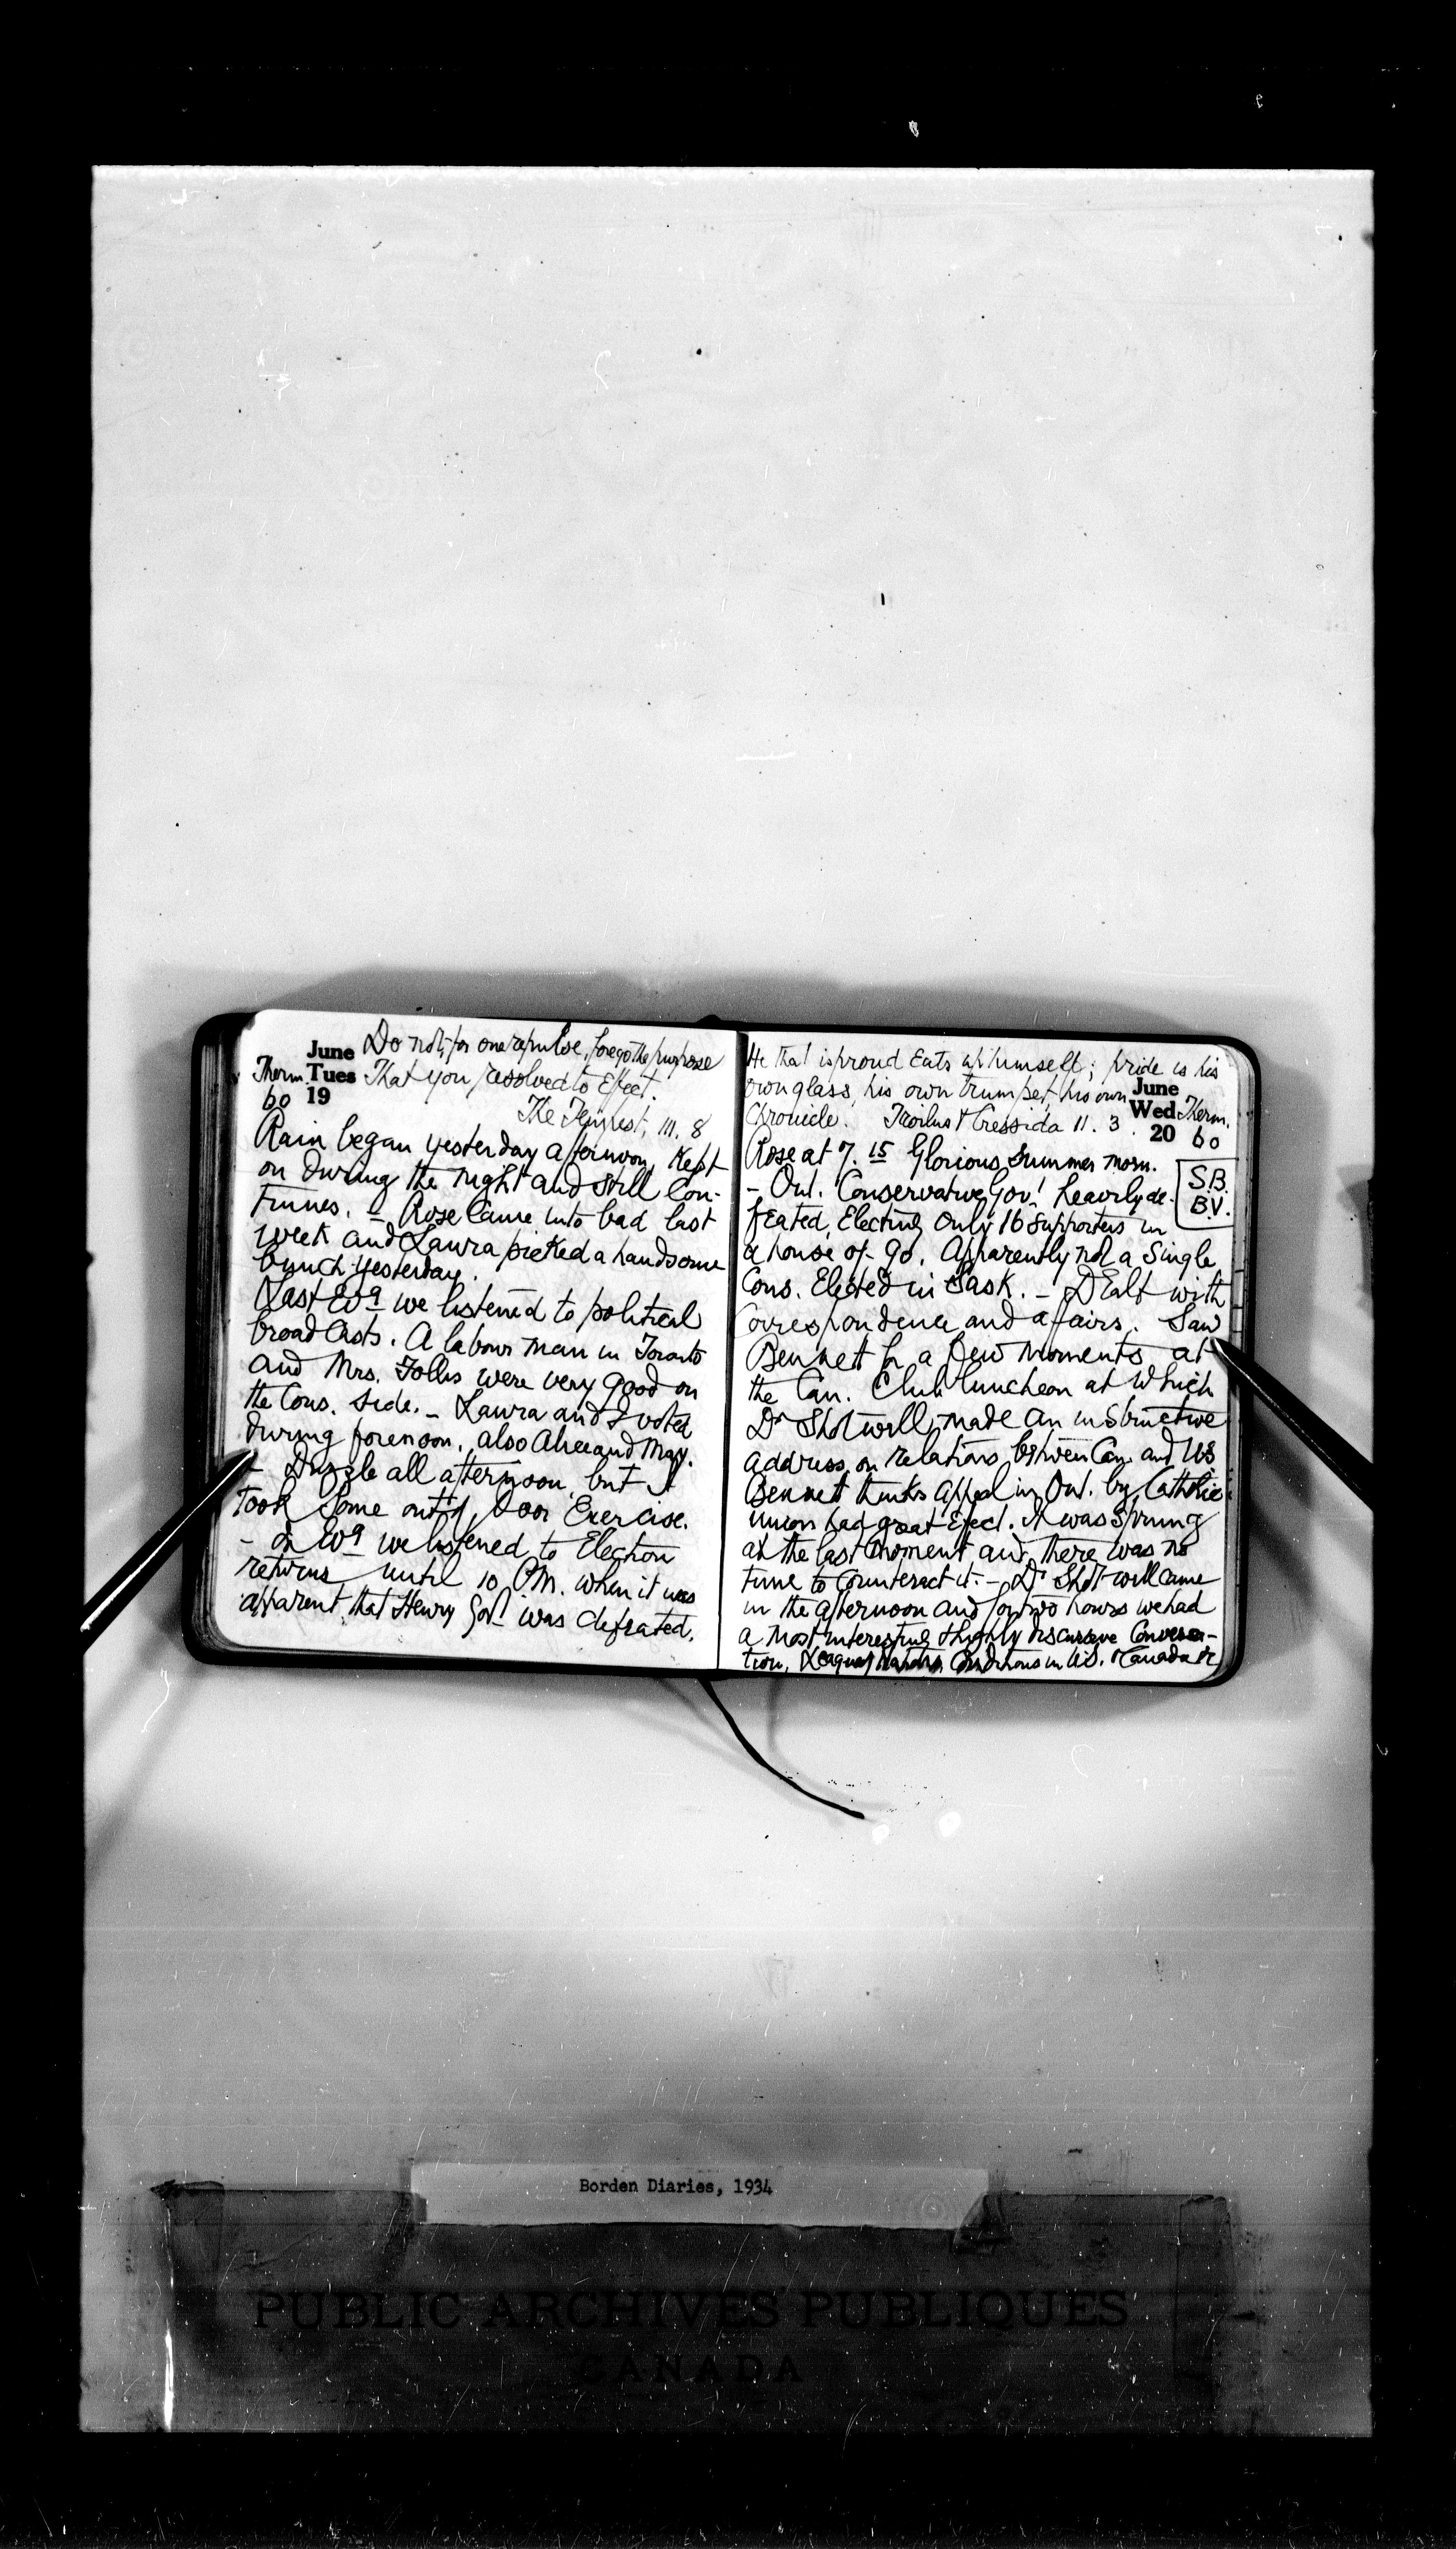 June Do not, for one repulse, forego the purpose
Therm. Tues That you resolved to Effect.
60 19 The Tempest, III. 8
Rain began yesterday afternoon, Kept
on during the night and still Con-
tinues. – Rose Came into bad last
week and Laura picked a handsome
bunch yesterday.
Last Evg we listened to political
broad Casts. A labour man in Toronto
and Mrs. Follis were very good on
the Cons. side. – Laura and I voted
during forenoon, also Alice and May.
– Drizzle all afternoon, but I
took some out of door Exercise.
– In Evg we listened to Election
returns until 10 P.M. when it was
apparent that Henry Govt was defeated.
He that is proud Eats up himself; pride is his
own glass, his own trumpet, his own June
Chronicle. Troilus & Cressida 11. 3. Wed Therm.
20 60
Rose at 7.15 Glorious Summer morn.
S.B.
B.V.
– Ont. Conservative Govt heavily de-
feated, Electing Only 16 supporters in
a house of 90. Apparently not a Single
Cons. Elected in Sask. – Dealt with
Correspondence and affairs. Saw
Bennett for a few moments at
the Can. Club luncheon at which
Dr Shotwell made an instructive
address on relations between Can. and US
Bennet thinks appeal in Ont. by Catholic
union had great Effect. It was Sprung
at the last moment and there was no
time to counteract it. – Dr Shotwell came
in the afternoon and for two hours we had
a most interesting & highly discursive Conversa-
tion, League of Nations, Conditions in U.S. & Canada &c
Borden Diaries, 1934
PUBLIC ARCHIVES PUBLIQUES
CANADA